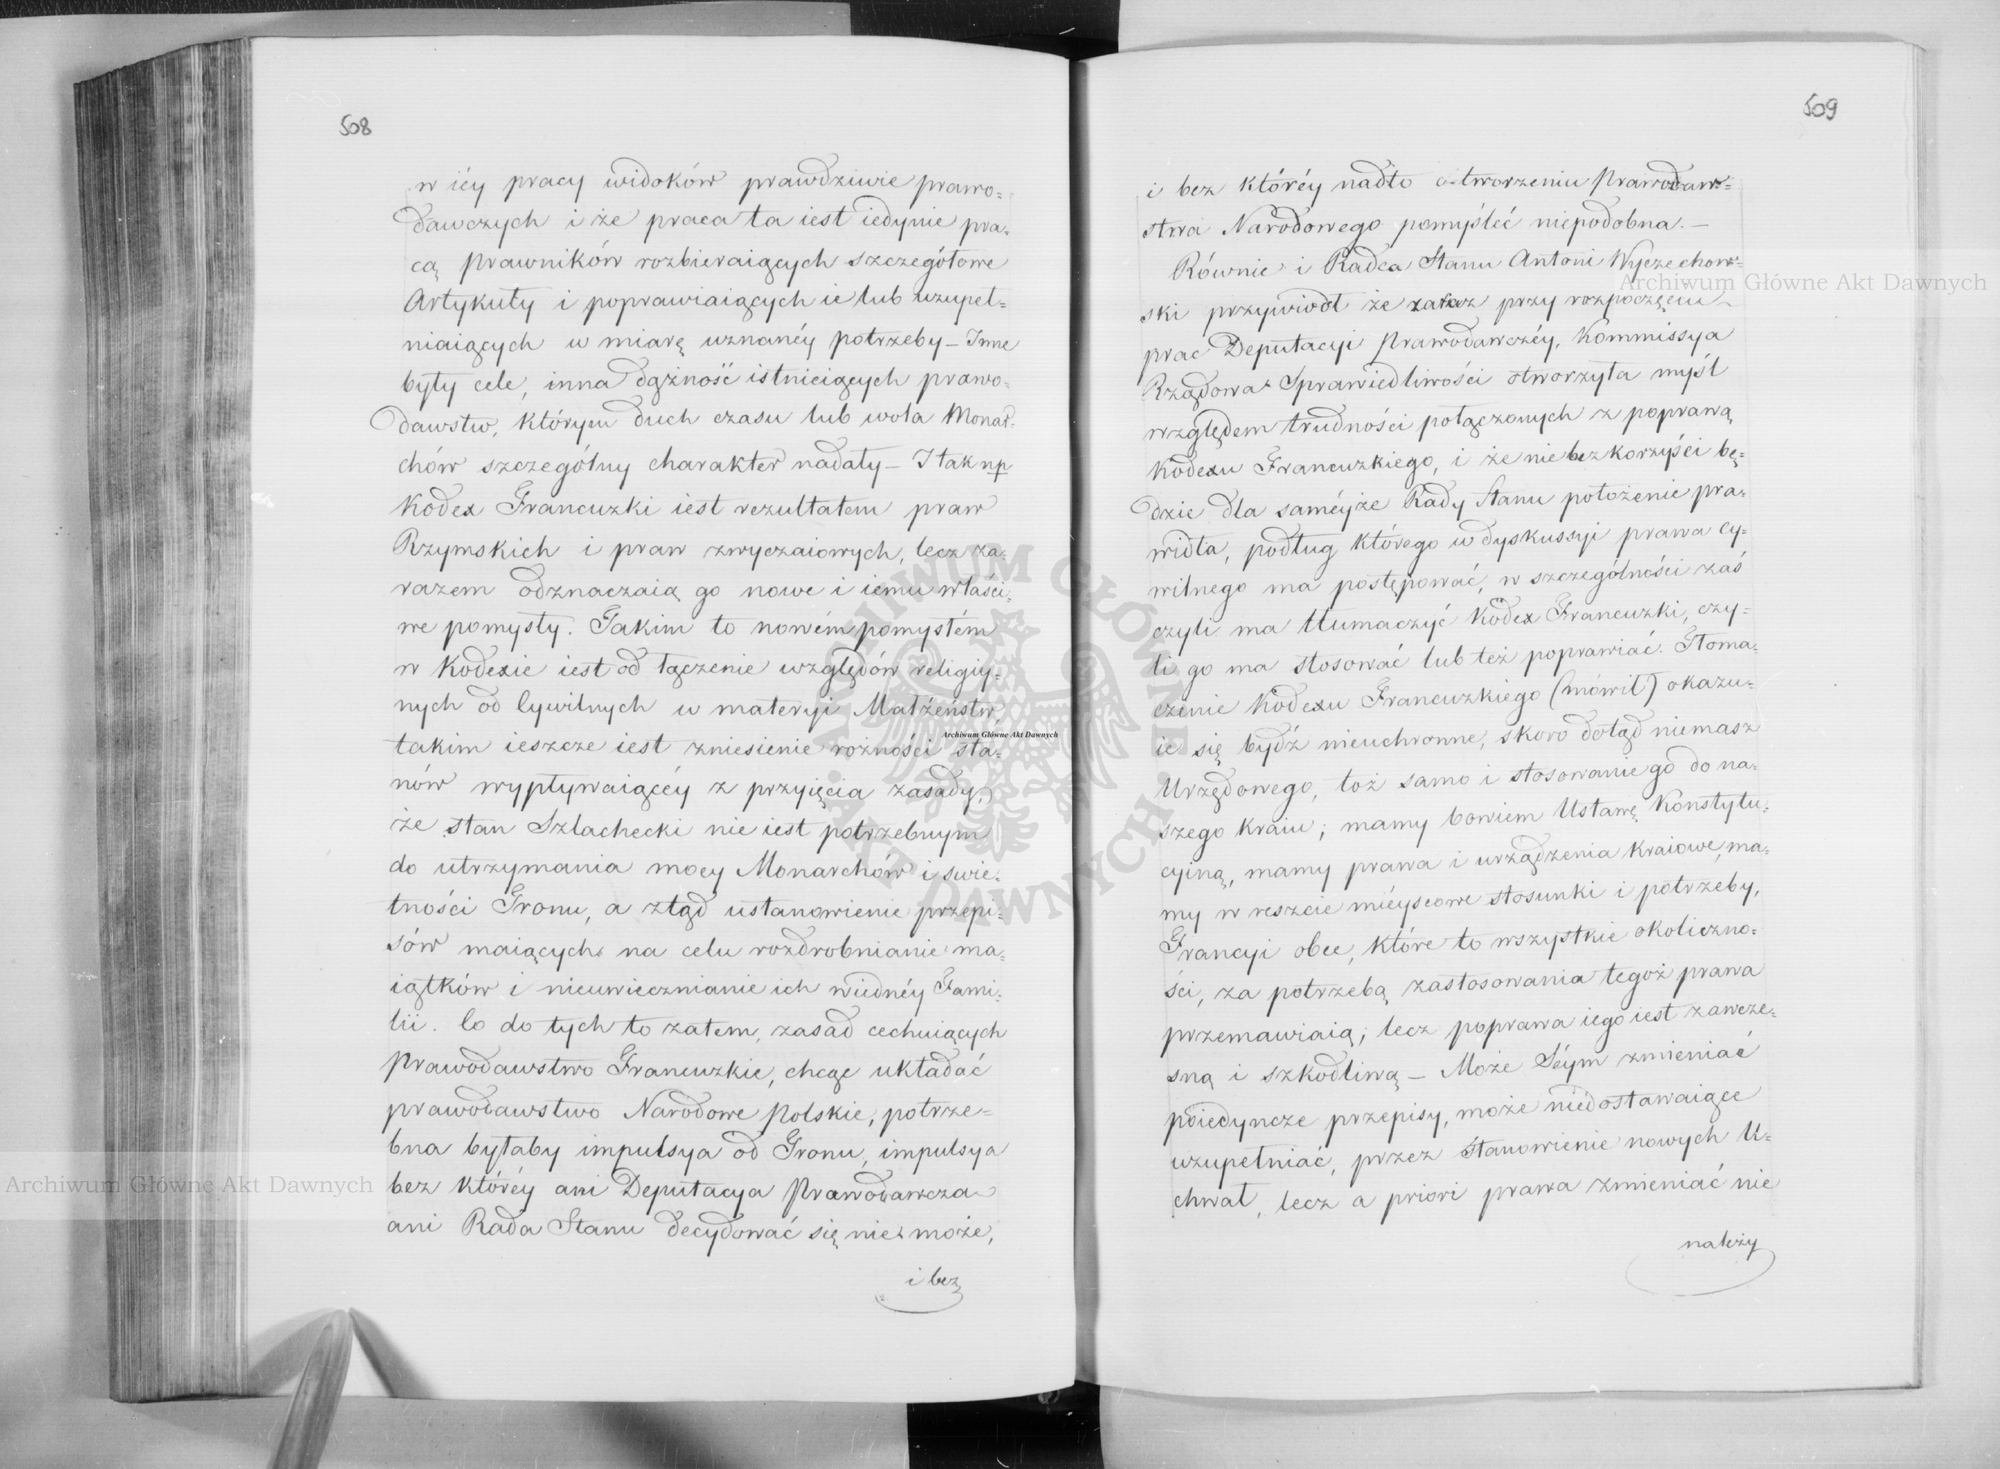 508
w iéy pracy widoków prawdziwie prawo=
dawczych i że praca ta iest iedynie pra=
cą prawników rozbieraiących szczegółowe
Artykuły i poprawiaiących ie lub uzupeł=
niaiących w miarę uznanéy potrzeby – Inne
były cele, inna dążność istnieiących prawo=
dawstw, którym duch czasu lub wola Monar=
chów szczególny charakter nadały – I tak np
Kodex Francuzki iest rezultatem praw
Rzymskich i praw zwyczaiowych, lecz za=
razem odznaczaią go nowe i iemu właści=
we pomysły. Takim to nowém pomysłém
w Kodexie iest od łączenie względów religiy=
nych od Cywilnych w materyi Małżeństw,
takim ieszcze iest zniesienie rożności sta=
nów wypływaiącéy z przyięcia zasady,
że stan Szlachecki nie iest potrzebnym
do utrzymania mocy Monarchów i świe=
tności Tronu, a ztąd ustanowienie przepi=
sów maiących na celu rozdrobnianie ma=
iątków i nieuwiecznianie ich w iednéy Fami=
lii. Co do tych to zatem, zasad cechuiących
prawodawstwo Francuzkie, chcąc układać
prawodawstwo Narodowe polskie, potrze=
bna byłaby impulsya od Tronu, impulsya
bez któréy ani Deputacya Prawodawcza
ani Rada Stanu decydować się nie może,
i bez
509
i bez któréy nadto o tworzeniu Prawodaw=
stwa Narodowego pomyśleć niepodobna. –
Równie i Radca Stanu Antoni Wyczechow=
ski przywiodł że zaraz przy rozpoczęciu
prac Deputacyi Prawodawczéy, Kommissya
Rządowa Sprawiedliwości otworzyła myśl
względem trudności połączonych z poprawą
Kodexu Francuzkiego, i że nie bez korzyści bę=
dzie dla saméyże Rady Stanu położenie pra=
widła, podług którego w dyskussyi prawa cy=
wilnego ma postępować, w szczególności zaś
czyli ma tłumaczyć Kodex Francuzki, czy=
li go ma stosować lub też poprawiać. Tłoma=
czenie Kodexu Francuzkiego (mówił) okazu=
ie się bydź nieuchronne, skoro dotąd niemasz
Urzędowego, toż samo i stosowanie go do na=
szego kraiu; mamy bowiem Ustawę Konstytu=
cyiną, mamy prawa i urządzenia kraiowe, ma=
my w reszcie mieyscowe stosunki i potrzeby,
Francyi obce, które to wszystkie okoliczno=
ści, za potrzebą zastosowania tegoż prawa
przemawiaią; lecz poprawa iego iest zawcze=
sną i szkodliwą – Może Séym zmieniać
poiedyncze przepisy, może niedostawaiące
uzupełniać, przez stanowienie nowych U=
chwał, lecz a priori prawa zmieniać nie
należy
Archiwum Główne Akt Dawnych
Archiwum Główne Akt Dawnych
Archiwum Główne Akt Dawnych
ARCHIWUM GŁÓWNE AKT DAWNYCH